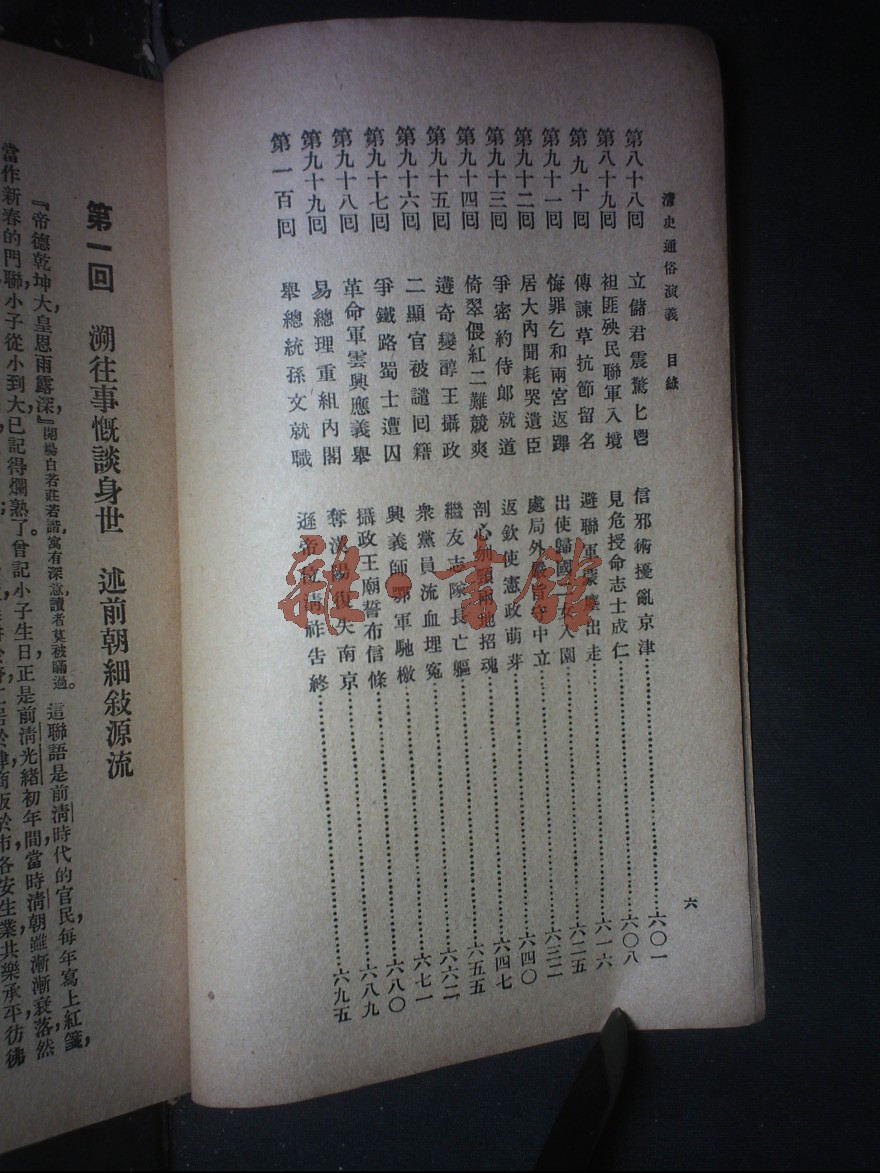 清史通俗演義 目錄
第八十八回 立儲君震驚匕鬯 信邪術擾亂京津 六〇一
第八十九回 袒匪殃民聯軍入境 見危授命志士成仁 六〇八
第九十回 傳諫草抗節留名 避聯軍蒙塵出走 六一六
第九十一回 悔罪乞和兩宮返蹕 出使歸國 女入園 六二五
第九十二回 居大內聞耗哭遺臣 處局外嚴旨守中立 六三二
第九十三回 爭密約侍郎就道 返欽使憲政萌芽 六四〇
第九十四回 倚翠偎紅二難競爽 剖心刎頸 招魂 六四七
第九十五回 遘奇變醇王攝政 繼友志隊長亡軀 六五五
第九十六回 二顯官被譴回籍 衆黨員流血埋冤 六六二
第九十七回 爭鐵路蜀士遭囚 興義師鄂軍馳檄 六七一
第九十八回 革命軍雲興應義舉 攝政王廟誓布信條 六八〇
第九十九回 易總理重組內閣 奪漢陽復失南京 六八九
第一百回 舉總統孫文就職 遜帝位清祚告終 六九五
六
第一回 溯往事慨談身世 述前朝細敍源流
『帝德乾坤大，皇恩雨露深。』開場白若莊若諧，寓有深意，讀者莫被瞞過。這聯語是前清時代的官民，每年寫上紅箋，
當作新春的門聯小子從小到大已記得爛熟了。曾記小子生日正是前清光緒初年間，當時清朝雖漸漸衰落，然
各安生業，共樂承平，彷彿
雜·書館